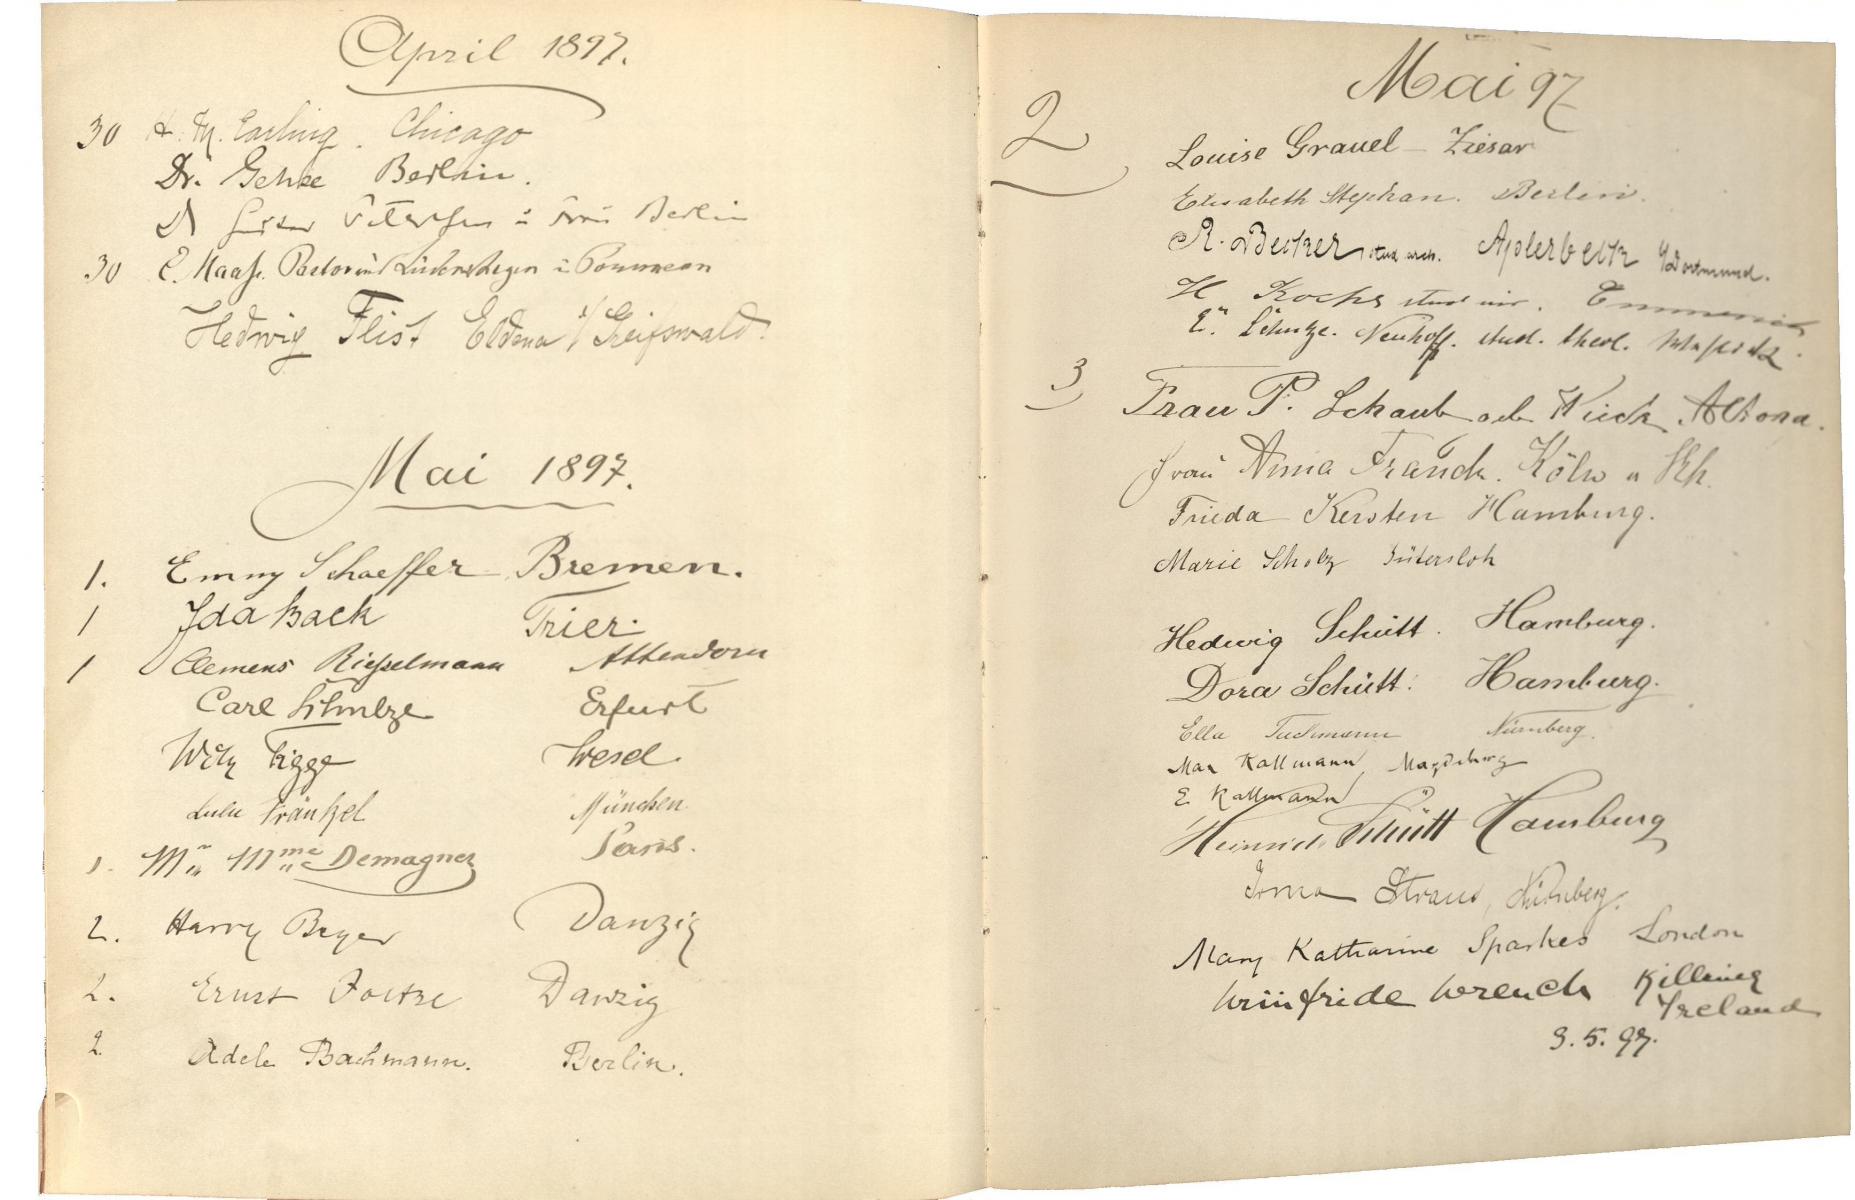 April 1897.
30 H. M. Earling. Chicago
Dr. Berlin.
Dr Berlin
30 E. Maaß. Pastor in i Pommern
Hedwig Flist Eldena b/ Greifswald.
Mai 1897.
1. Emmy Schaeffer Bremen.
1 Ida Back Trier.
1 Clemens Riesselmann Attendorn
Carl Schulze Erfurt
Willy Tigge Wesel.
Lulu Fränkel München.
1. Mr u. Mme Demagnez Paris.
2. Harry Beyer Danzig
2. Ernst Danzig
2. Adele Bachmann. Berlin.
Mai 97
2
Louise Grauel - Ziesar
Elisabeth Stephan. Berlin.
R. Becker stud. arch. Aplerbeck b/Dortmund.
H. Kochs stud. Emmerich
E. Schulze-Neuhoff. stud. theol.
3
Frau P. Schaub geb Kieck Altona.
Frau Anna Franck. Köln a Rh.
Frieda Kersten Hamburg.
Marie Scholz Gütersloh
Hedwig Schütt. Hamburg.
Dora Schütt. Hamburg.
Ella Tuchmann Nürnberg.
Max Kallmann, Magdeburg
E. Kallmann
Heinrich Schütt Hamburg
Irma Straus, Nürnberg.
Mary Katharine Sparkes London
Winifride Wrench Killacoona
Ireland
3.5.97.